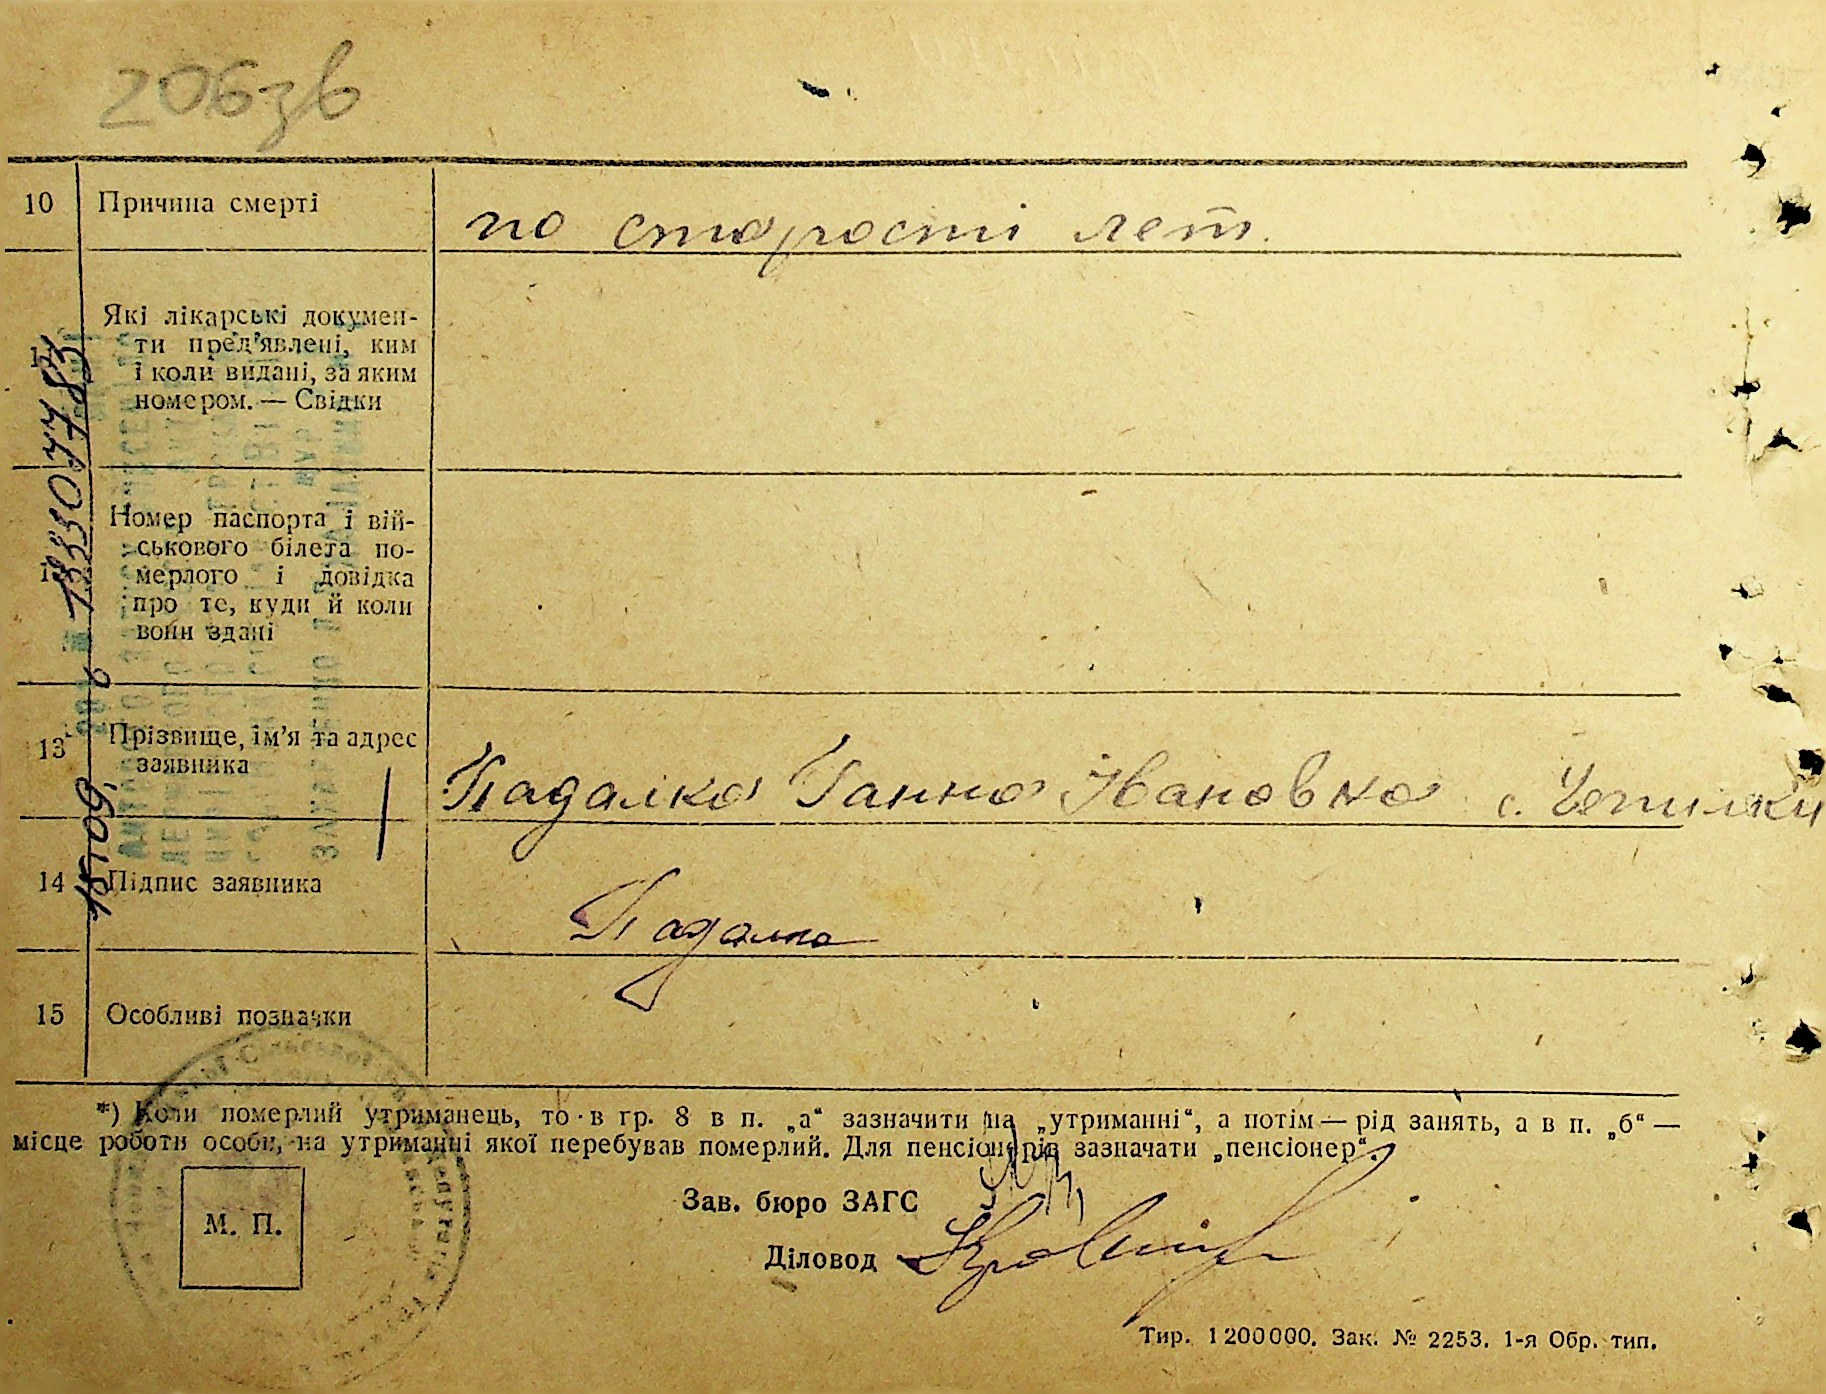 206зв
10 Причина смерті по старости лет.
Які лікарські докумен-
ти пред'явлені, ким
і коли видані, за яким
номером. — Свідки
Номер паспорта і вій-
ськового білета по-
мерлого і довідка
про те, куди й коли
вони здані
13 Прізвище, ім'я та адрес
заявника
Падалка Ганна Івановна с.
14 Підпис заявника
Падалка
15 Особливі позначки
*) Коли померлий утриманець, то в гр. 8 в п. „а“ зазначити на „утриманні“, а потім — рід занять, а в п. „б“ —
місце роботи особи, на утриманні якої перебував померлий. Для пенсіонерів зазначати „пенсіонер“.
Зав. бюро ЗАГС
М. П.
Діловод
Тир. 1200000. Зак. № 2253. 1-я Обр. тип.